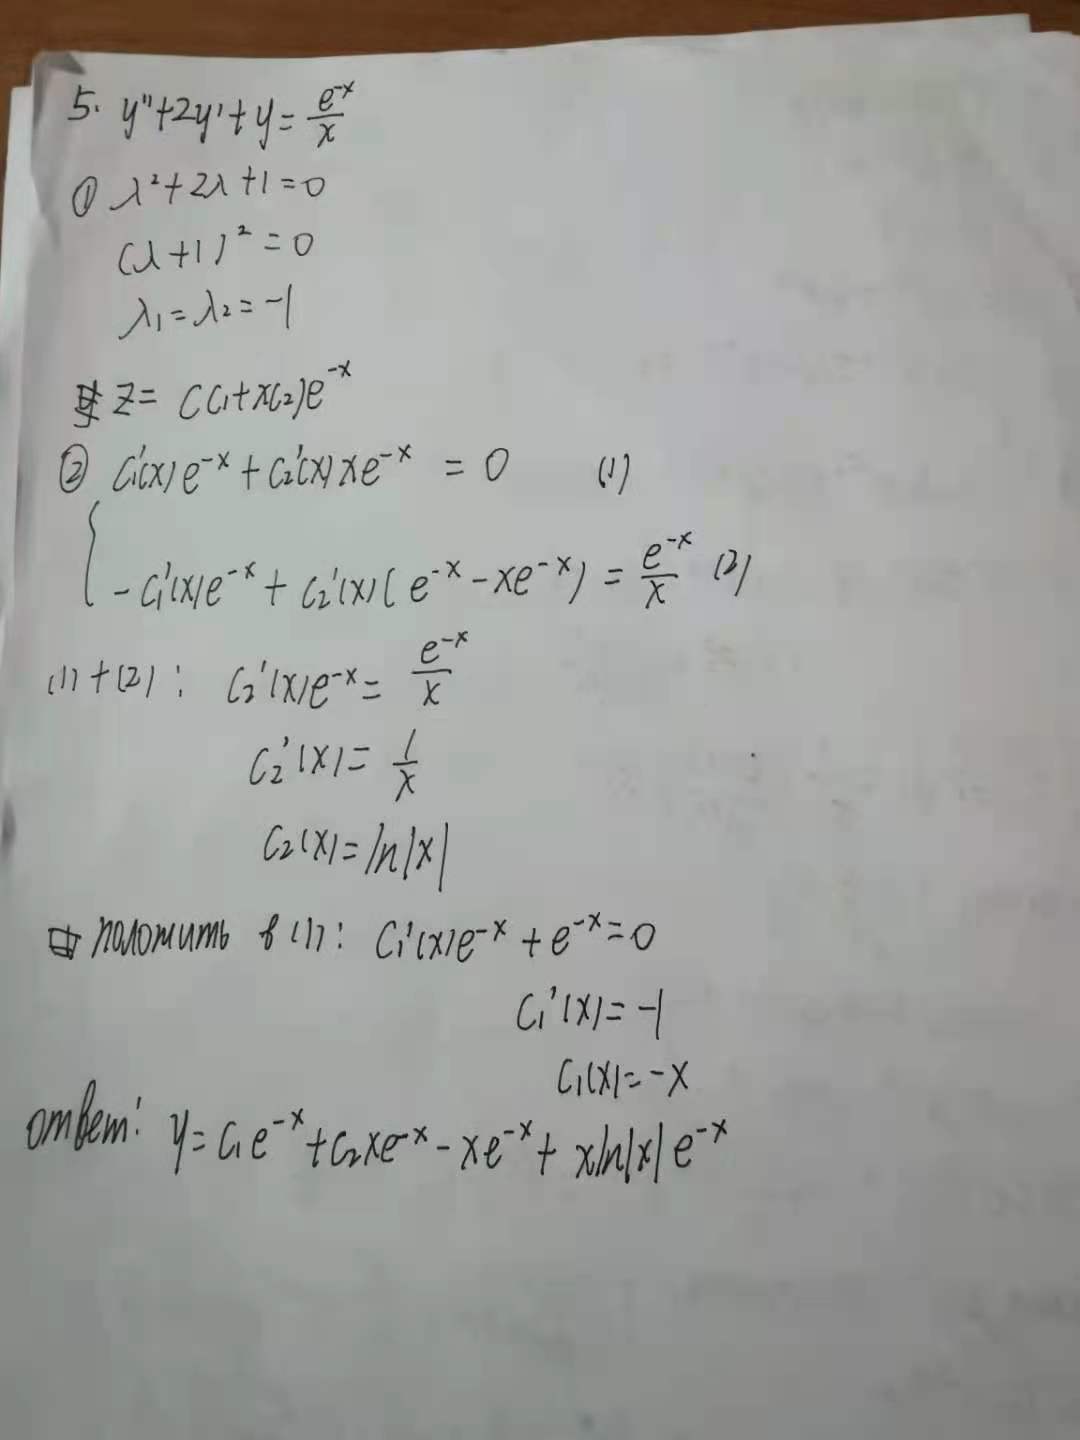 5. y''+2y'+y= e^-x/x
① λ²+2λ+1=0
(λ+1)²=0
λ₁=λ₂=-1
z= (C₁+xC₂)e^-x
② C₁'(x)e^-x + C₂'(x)xe^-x = 0 (1)
{ -C₁'(x)e^-x + C₂'(x)(e^-x - xe^-x) = e^-x/x (2)
(1)+(2): C₂'(x)e^-x = e^-x/x
C₂'(x)= 1/x
C₂(x)=ln|x|
положить в (1): C₁'(x)e^-x + e^-x=0
C₁'(x)=-1
C₁(x)=-x
ответ: y=C₁e^-x+C₂xe^-x-xe^-x+ xln|x|e^-x